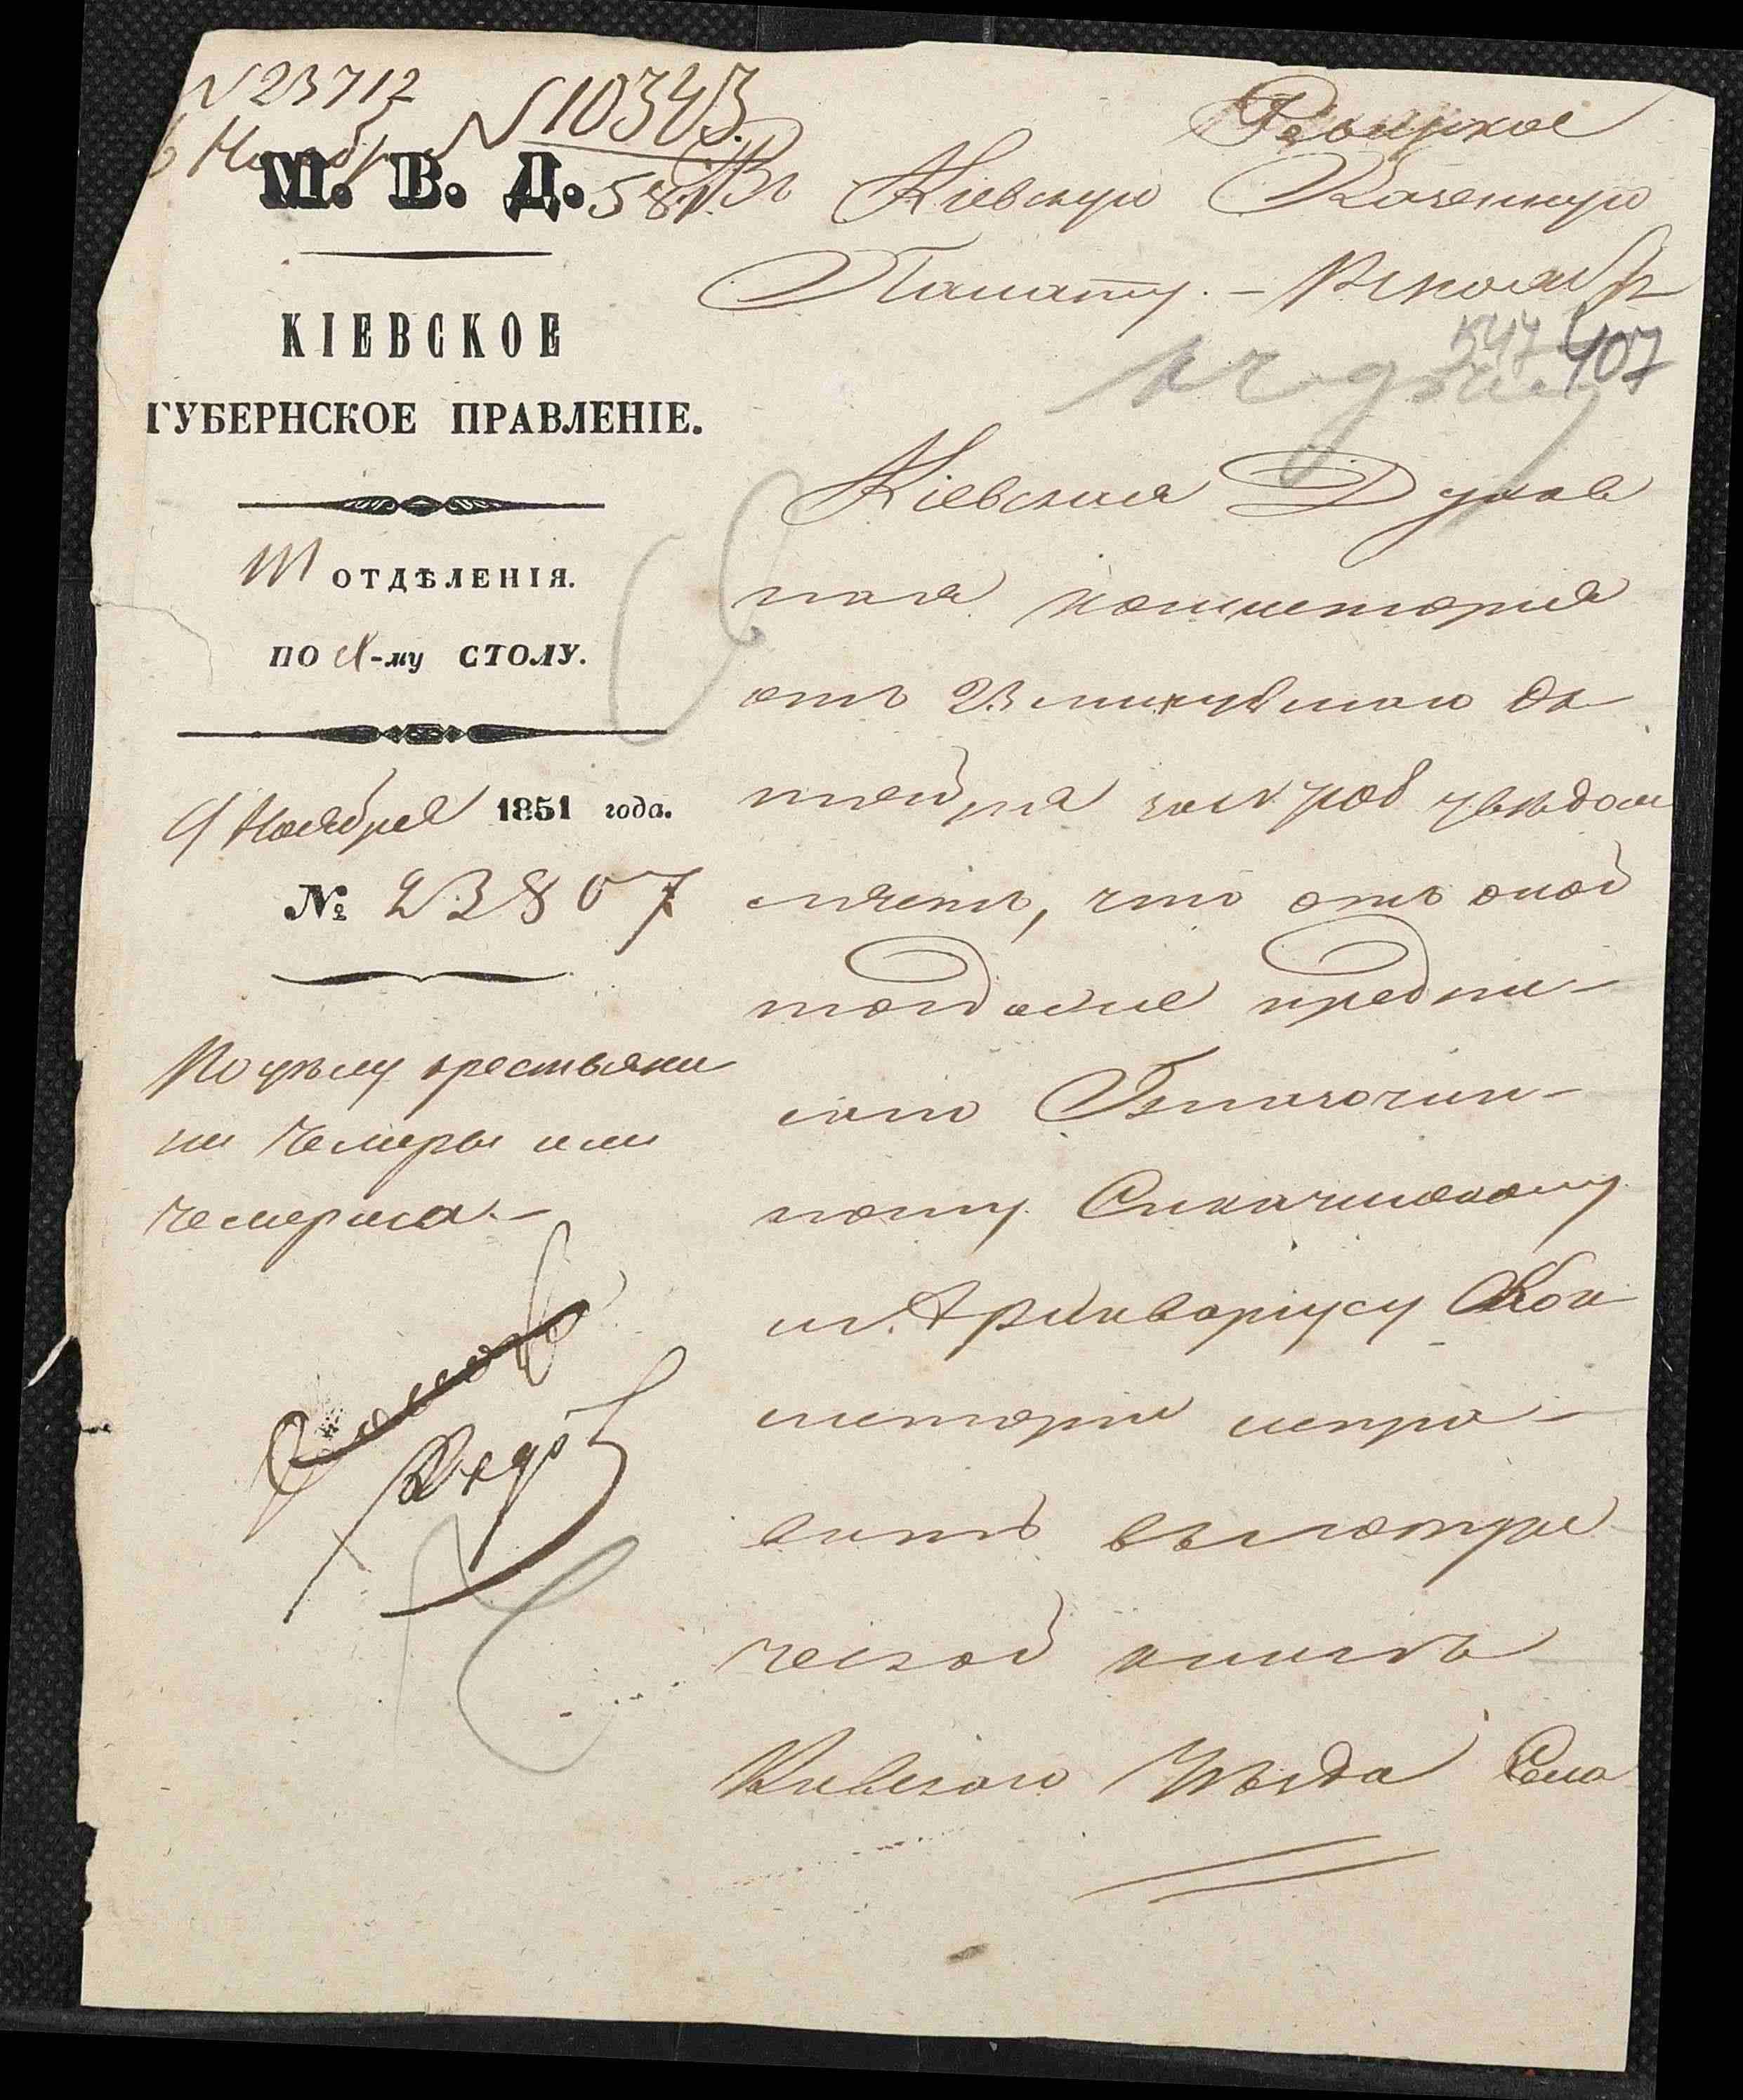 N 23712
6 Ноября N 10343.
581.
М. В. Д.
КІЕВСКОЕ
ГУБЕРНСКОЕ ПРАВЛЕНІЕ.
III ОТДѢЛЕНІЯ.
ПО -му СТОЛУ.
9 Ноября 1851 года.
№ 23807
По дѣлу крестьяни
на Чемеры или
Чемериса.—
Въ Кіевскую Казенную
Палату. —
407
Кіевская Духов
ная консисторія
отъ 23 минувшаго Ок
тября за № увѣдом
ляетъ, что отъ оной
предпи-
сано Благочин-
ному
и Архиваріусу Кон
систоріи испра-
вить въ метри
ческой книгѣ
Кіевскаго Уѣзда Села